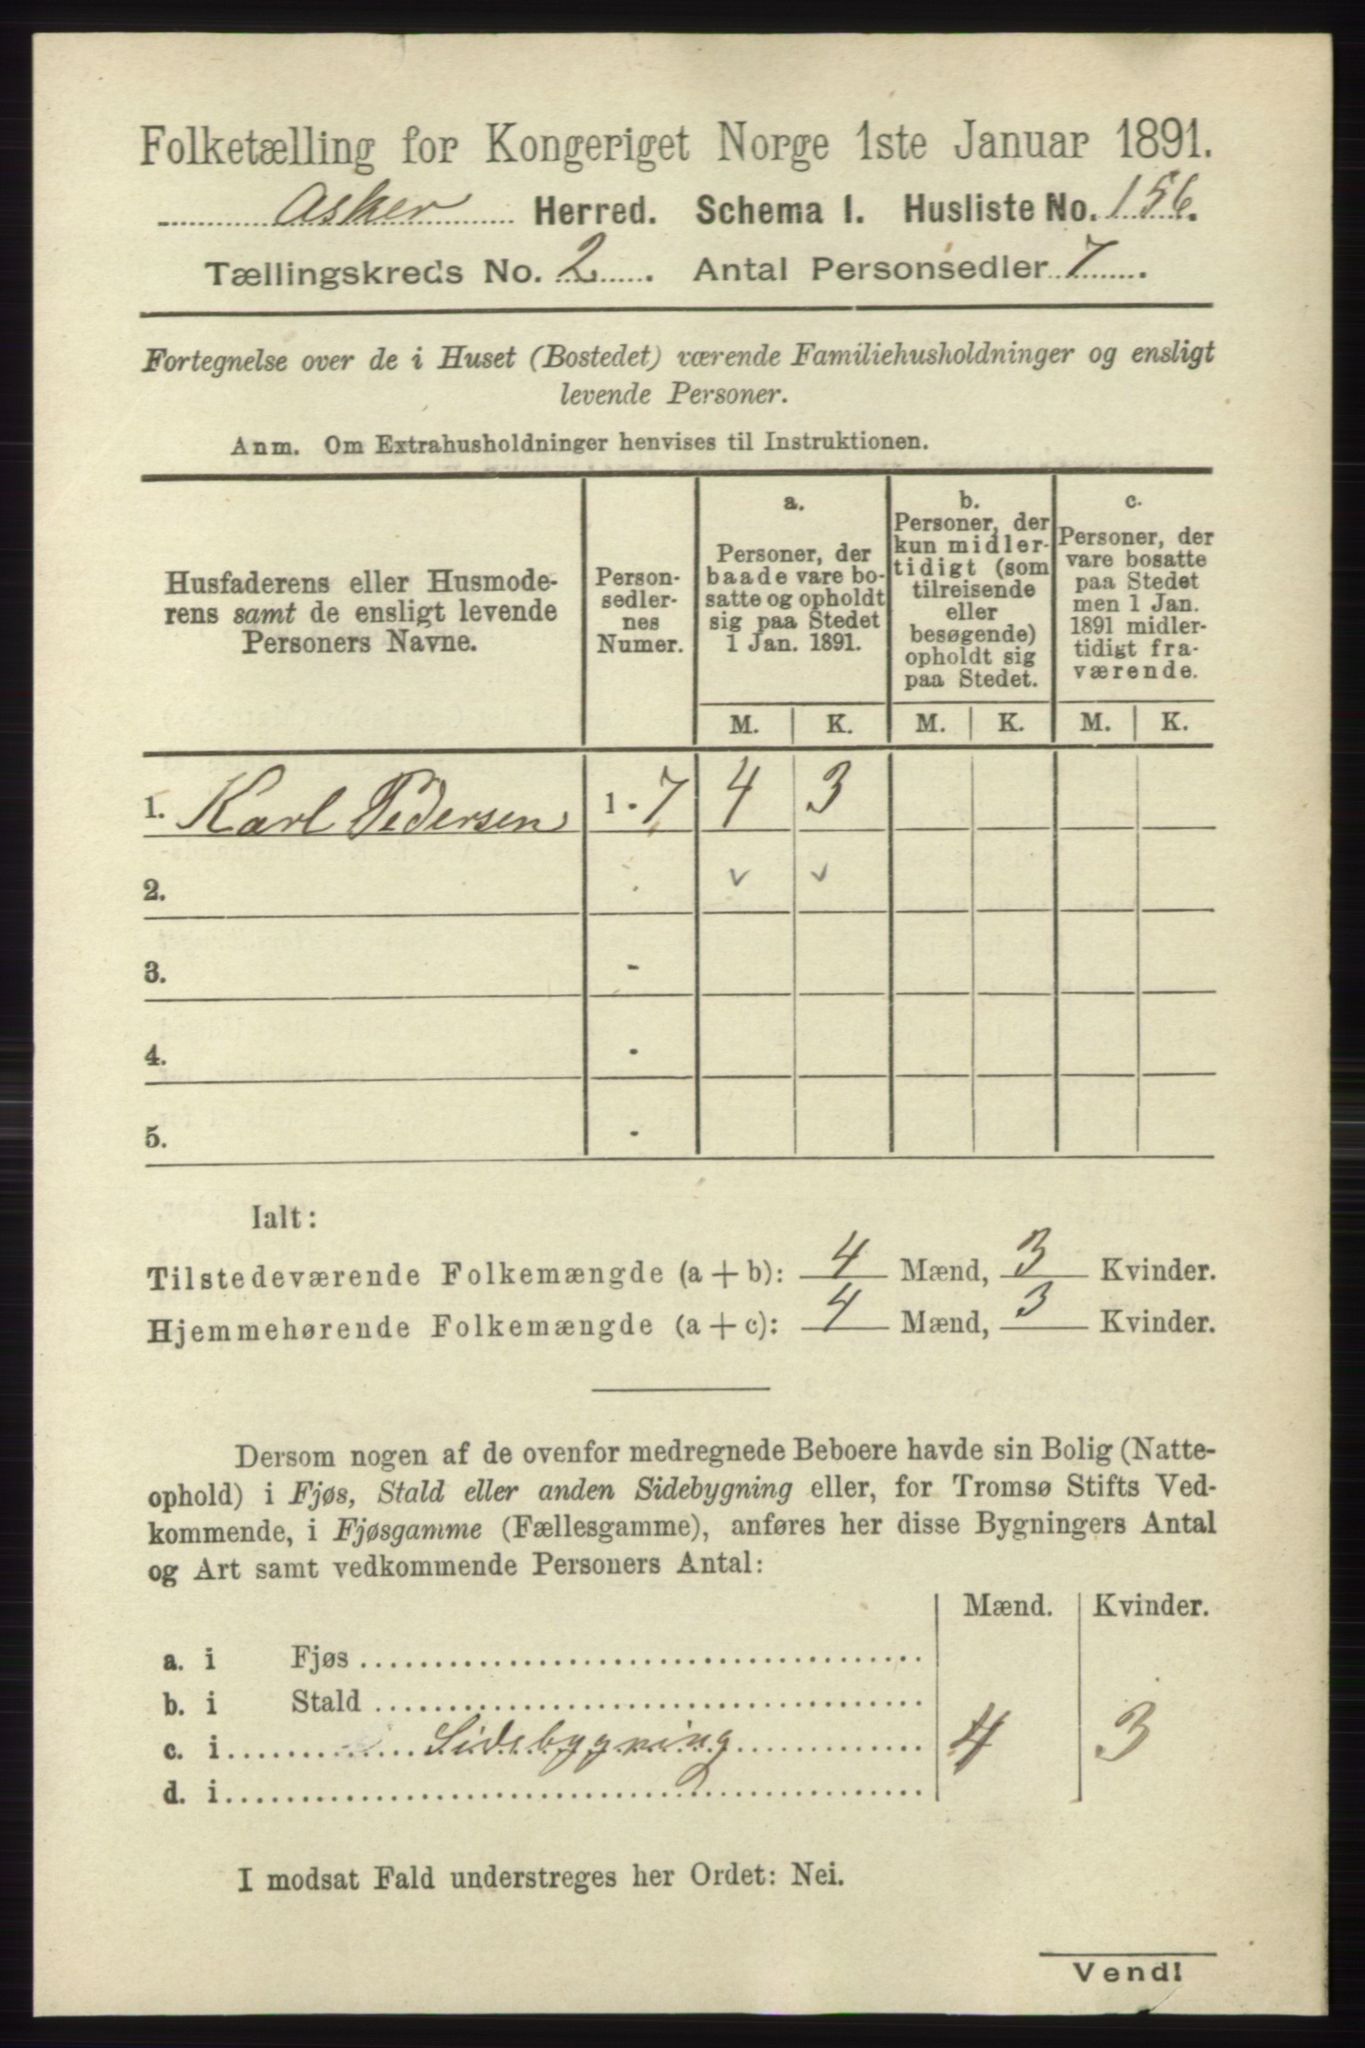 Folketælling for Kongeriget Norge 1ste Januar 1891.
Asker Herred. Schema I. Husliste No. 156.
Tællingskreds No. 2. Antal Personsedler 7.
Fortegnelse over de i Huset (Bostedet) værende Familiehusholdninger og ensligt
levende Personer.
Anm. Om Extrahusholdninger henvises til Instruktionen.
Husfaderens eller Husmode-
rens samt de ensligt levende
Personers Navne.
Person-
sedler-
nes
Numer.
a.
Personer, der
baade vare bo-
satte og opholdt
sig paa Stedet
1 Jan. 1891.
b.
Personer, der
kun midler-
tidigt (som
tilreisende
eller
besøgende)
opholdt sig
paa Stedet.
c.
Personer, der
vare bosatte
paa Stedet
men 1 Jan.
1891 midler-
tidigt fra-
værende.
M. K. M. K. M. K.
1. Karl Pedersen 1 - 7 4 3
2. v v
3. -
4. -
5. -
Ialt:
Tilstedeværende Folkemængde (a + b): 4 Mænd, 3 Kvinder.
Hjemmehørende Folkemængde (a + c): 4 Mænd, 3 Kvinder.
Dersom nogen af de ovenfor medregnede Beboere havde sin Bolig (Natte-
ophold) i Fjøs, Stald eller anden Sidebygning eller, for Tromsø Stifts Ved-
kommende, i Fjøsgamme (Fællesgamme), anføres her disse Bygningers Antal
og Art samt vedkommende Personers Antal:
Mænd. Kvinder.
a. i Fjøs
b. i Stald
c. i Sidebygning 4 3
d. i
I modsat Fald understreges her Ordet: Nei.
Vend!